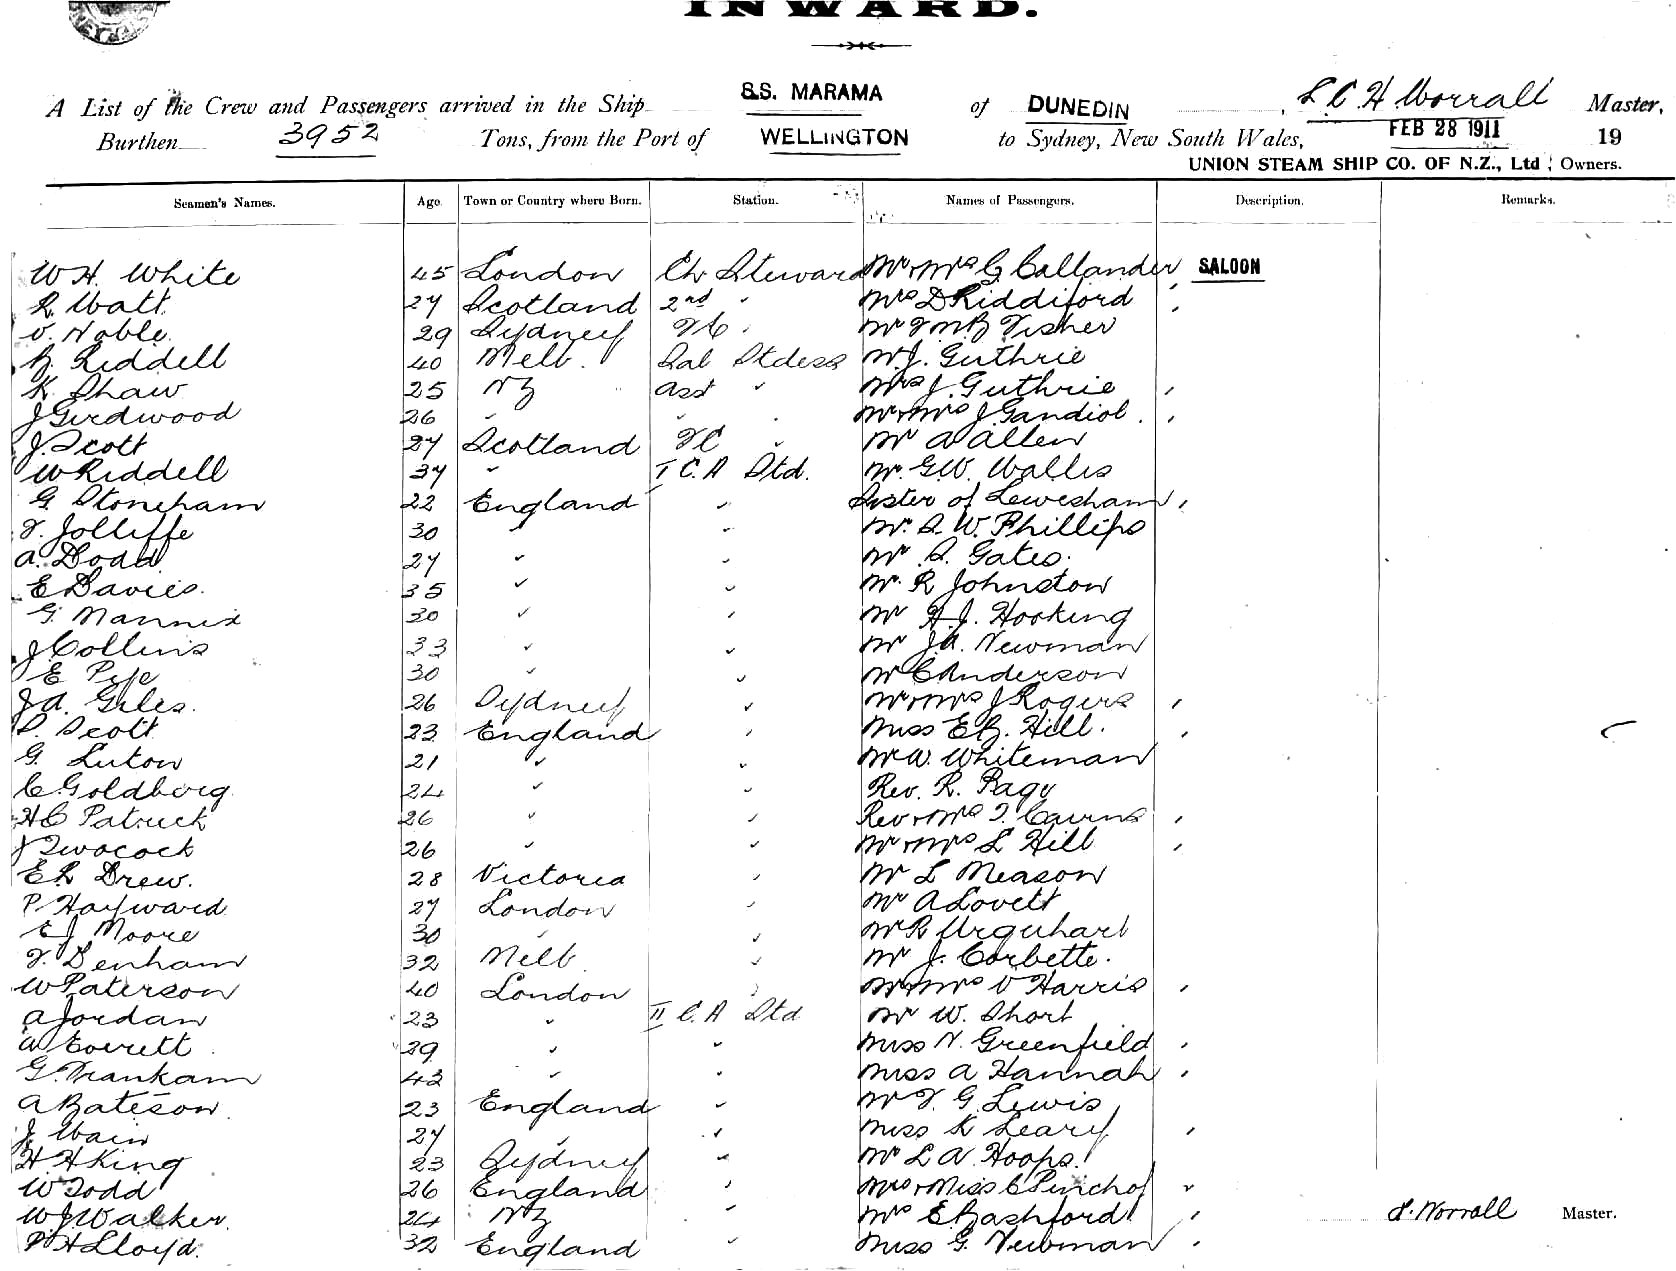 INWARD.
A List of the Crew and Passengers arrived in the Ship SS. MARAMA of DUNEDIN, L C H Worrall Master,
Burthen 3952 Tons, from the Port of WELLINGTON to Sydney, New South Wales, FEB 28 1911 19
UNION STEAM SHIP CO. OF N.Z., Ltd ; Owners.
Seamen's Names. Age. Town or Country where Born. Station. Names of Passengers. Description. Remarks.
W H. White 45 London Ch Steward Mr & Mrs G Callander SALOON
R Watt 27 Scotland 2nd " Mrs D Riddiford "
V. Noble 29 Sydney " Mr Fisher
Riddell 40 Melb. Sal Stdess Mr J. Guthrie
K Shaw 25 NZ Asst " Mrs J Guthrie "
J Girdwood 26 " " Mr & Mrs J Gandiol. "
J. Scott 27 Scotland " Mr A Allen
W Riddell 37 " I C. A Std. Mr. G.W. Wallis
G Stoneham 22 England " Sister of Lewesham "
F. Jolliffe 30 " " Mr. A. W. Phillips
A. Dodd 27 " " Mr A. Gates.
E Davies. 35 " " Mr. R Johnston
G. Mannix 30 " " Mr H. J. Hooking
J Collins 33 " " Mr J.A. Newman
E Pye 30 " " Mr C Anderson
J A. Giles. 26 Sydney " Mr & Mrs J Rogers "
Scott 23 England " Miss E B. Hill. "
G. Luton 21 " " Mr W. Whiteman
C. Goldborg 24 " " Rev. R. Page
H C Patrick 26 " " Rev & Mrs T. Cairns "
J Twocock 26 " " Mr & Mrs L Hill "
E L Drew. 28 Victoria " Mr L Meason
P Hayward 27 London " Mr A Lovett
E J Moore 30 " " Mr R Urquhart
F. Denham 32 Melb " Mr J. Corbette.
W Paterson 40 London " Mr & Mrs V Harris "
A Jordan 23 " II C. A Std Mr W. Short
A Everett 29 " " Miss N. Greenfield "
G. Frankam 43 " " Miss A Hannah "
A Bateson. 23 England " Mr F. G. Lewis
J Wain 27 " " Miss K Leary "
H H King 23 Sydney " Mr L A Hoops.
W Todd 26 England " Mrs & Miss C Pinchof "
W J Walker. 24 NZ " Mrs E Bashford " L. Worrall Master.
P H Lloyd. 32 England " Miss G. Newman "